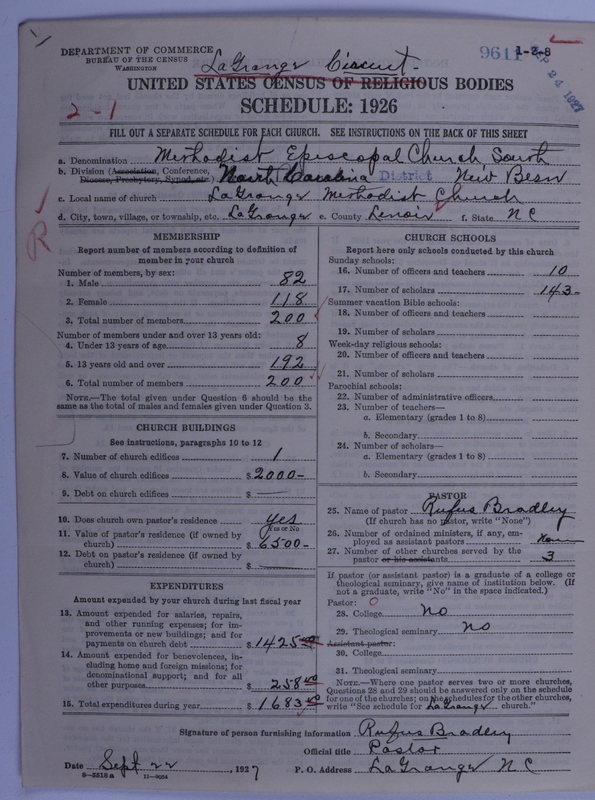 DEPARTMENT OF COMMERCE
BUREAU OF THE CENSUS
WASHINGTON
LaGrange Circuit
9611 1-2-8
SEP 24 1927
UNITED STATES CENSUS OF RELIGIOUS BODIES
SCHEDULE: 1926
2-1
FILL OUT A SEPARATE SCHEDULE FOR EACH CHURCH. SEE INSTRUCTIONS ON THE BACK OF THIS SHEET
a. Denomination Methodist Episcopal Church South
b. Division (Association, Conference, Diocese, Presbytery, Synod, etc.) North Carolina District New Bern
c. Local name of church LaGrange Methodist Church
d. City, town, village, or township, etc. LaGrange e. County Lenoir f. State N C
R
MEMBERSHIP
Report number of members according to definition of
member in your church
Number of members, by sex:
1. Male 82
2. Female 118
3. Total number of members 200
Number of members under and over 13 years old:
4. Under 13 years of age 8
5. 13 years old and over 192
6. Total number of members 200
NOTE.—The total given under Question 6 should be the
same as the total of males and females given under Question 3.
CHURCH BUILDINGS
See instructions, paragraphs 10 to 12
7. Number of church edifices 1
8. Value of church edifices $ 2000-
9. Debt on church edifices $ —
10. Does church own pastor's residence yes
Yes or No
11. Value of pastor's residence (if owned by
church) $ 6500-
12. Debt on pastor's residence (if owned by
church) $ —
EXPENDITURES
Amount expended by your church during last fiscal year
13. Amount expended for salaries, repairs,
and other running expenses; for im-
provements or new buildings; and for
payments on church debt $ 1425 00
14. Amount expended for benevolences, in-
cluding home and foreign missions; for
denominational support; and for all
other purposes $ 258 40
15. Total expenditures during year $ 1683 40
CHURCH SCHOOLS
Report here only schools conducted by this church
Sunday schools:
16. Number of officers and teachers 10
17. Number of scholars 143-
Summer vacation Bible schools:
18. Number of officers and teachers
19. Number of scholars
Week-day religious schools:
20. Number of officers and teachers
21. Number of scholars
Parochial schools:
22. Number of administrative officers
23. Number of teachers—
a. Elementary (grades 1 to 8)
b. Secondary
24. Number of scholars—
a. Elementary (grades 1 to 8)
b. Secondary
PASTOR
25. Name of pastor Rufus Bradley
(If church has no pastor, write "None")
26. Number of ordained ministers, if any, em-
ployed as assistant pastors None
27. Number of other churches served by the
pastor or his assistants 3
If pastor (or assistant pastor) is a graduate of a college or
theological seminary, give name of institution below. (If
not a graduate, write "No" in the space indicated.)
Pastor: O
28. College No
29. Theological seminary No
Assistant pastor:
30. College
31. Theological seminary
NOTE.—Where one pastor serves two or more churches,
Questions 28 and 29 should be answered only on the schedule
for one of the churches; on the schedules for the other churches,
write "See schedule for LaGrange church."
Signature of person furnishing information Rufus Bradley
Official title Pastor
Date Sept 22, 1927 P. O. Address LaGrange N C
8-5318 a 11-9034